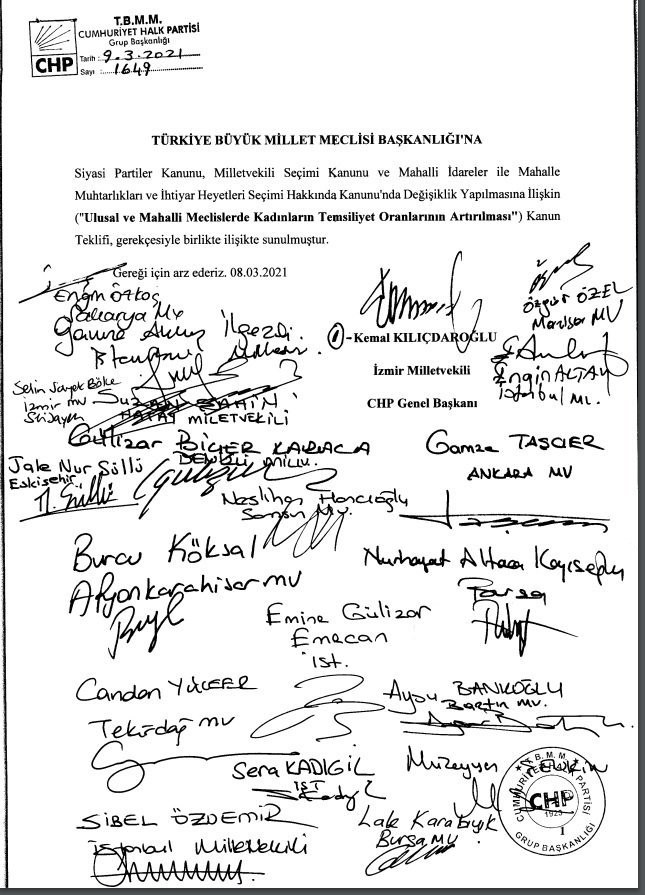 T.B.M.M.
CUMHURİYET HALK PARTİSİ
Grup Başkanlığı
CHP
Tarih : 9.3.2021
Sayı : 1649
TÜRKİYE BÜYÜK MİLLET MECLİSİ BAŞKANLIĞI'NA
Siyasi Partiler Kanunu, Milletvekili Seçimi Kanunu ve Mahalli İdareler ile Mahalle
Muhtarlıkları ve İhtiyar Heyetleri Seçimi Hakkında Kanunu'nda Değişiklik Yapılmasına İlişkin
("Ulusal ve Mahalli Meclislerde Kadınların Temsiliyet Oranlarının Artırılması") Kanun
Teklifi, gerekçesiyle birlikte ilişikte sunulmuştur.
Gereği için arz ederiz. 08.03.2021
Engin Özkoç
Sakarya MV
Özgür ÖZEL
Manisa MV
İlgezdi
İstanbul
1-Kemal KILIÇDAROĞLU
İzmir Milletvekili
CHP Genel Başkanı
Engin ALTAY
İstanbul MV.
Selin Sayek Böke
İzmir MV
SUZAN ŞAHİN
HATAY MİLETVEKİLİ
Gülizar BİÇER KARACA
DENİZLİ
Gamze TAŞCIER
ANKARA MV
Jale Nur Süllü
Eskişehir
Neslihan Hancıoğlu
Samsun MV.
Burcu Köksal
Afyonkarahisar MV
Nurhayat Altaca Kayışoğlu
Bursa
Emine Gülizar
Emecan
İst.
Candan YÜCEER
Tekirdağ MV
Aysu BANKOĞLU
Bartın MV.
Sera KADIGİL
İST
Müzeyyen
SİBEL ÖZDEMİR
İstanbul Milletvekili
Lale Karabıyık
Bursa MV
T.B.M.M.
CUMHURİYET HALK PARTİSİ
CHP
1923
GRUP BAŞKANLIĞI
1